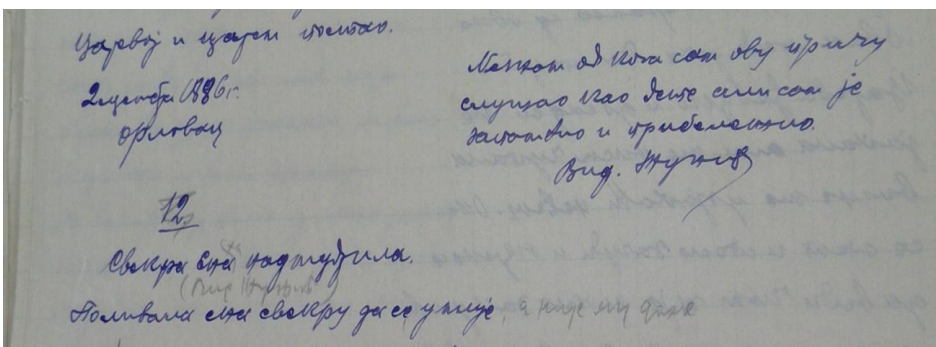 царевој и царем постао.
2 1886 г.
Орловац
од кога сам ову причу
слушао као дете али сам је
и прибележио.
Вид.
12
Свекра сна надмудрила.
Поливала сна свекру да се умије, а није му дала